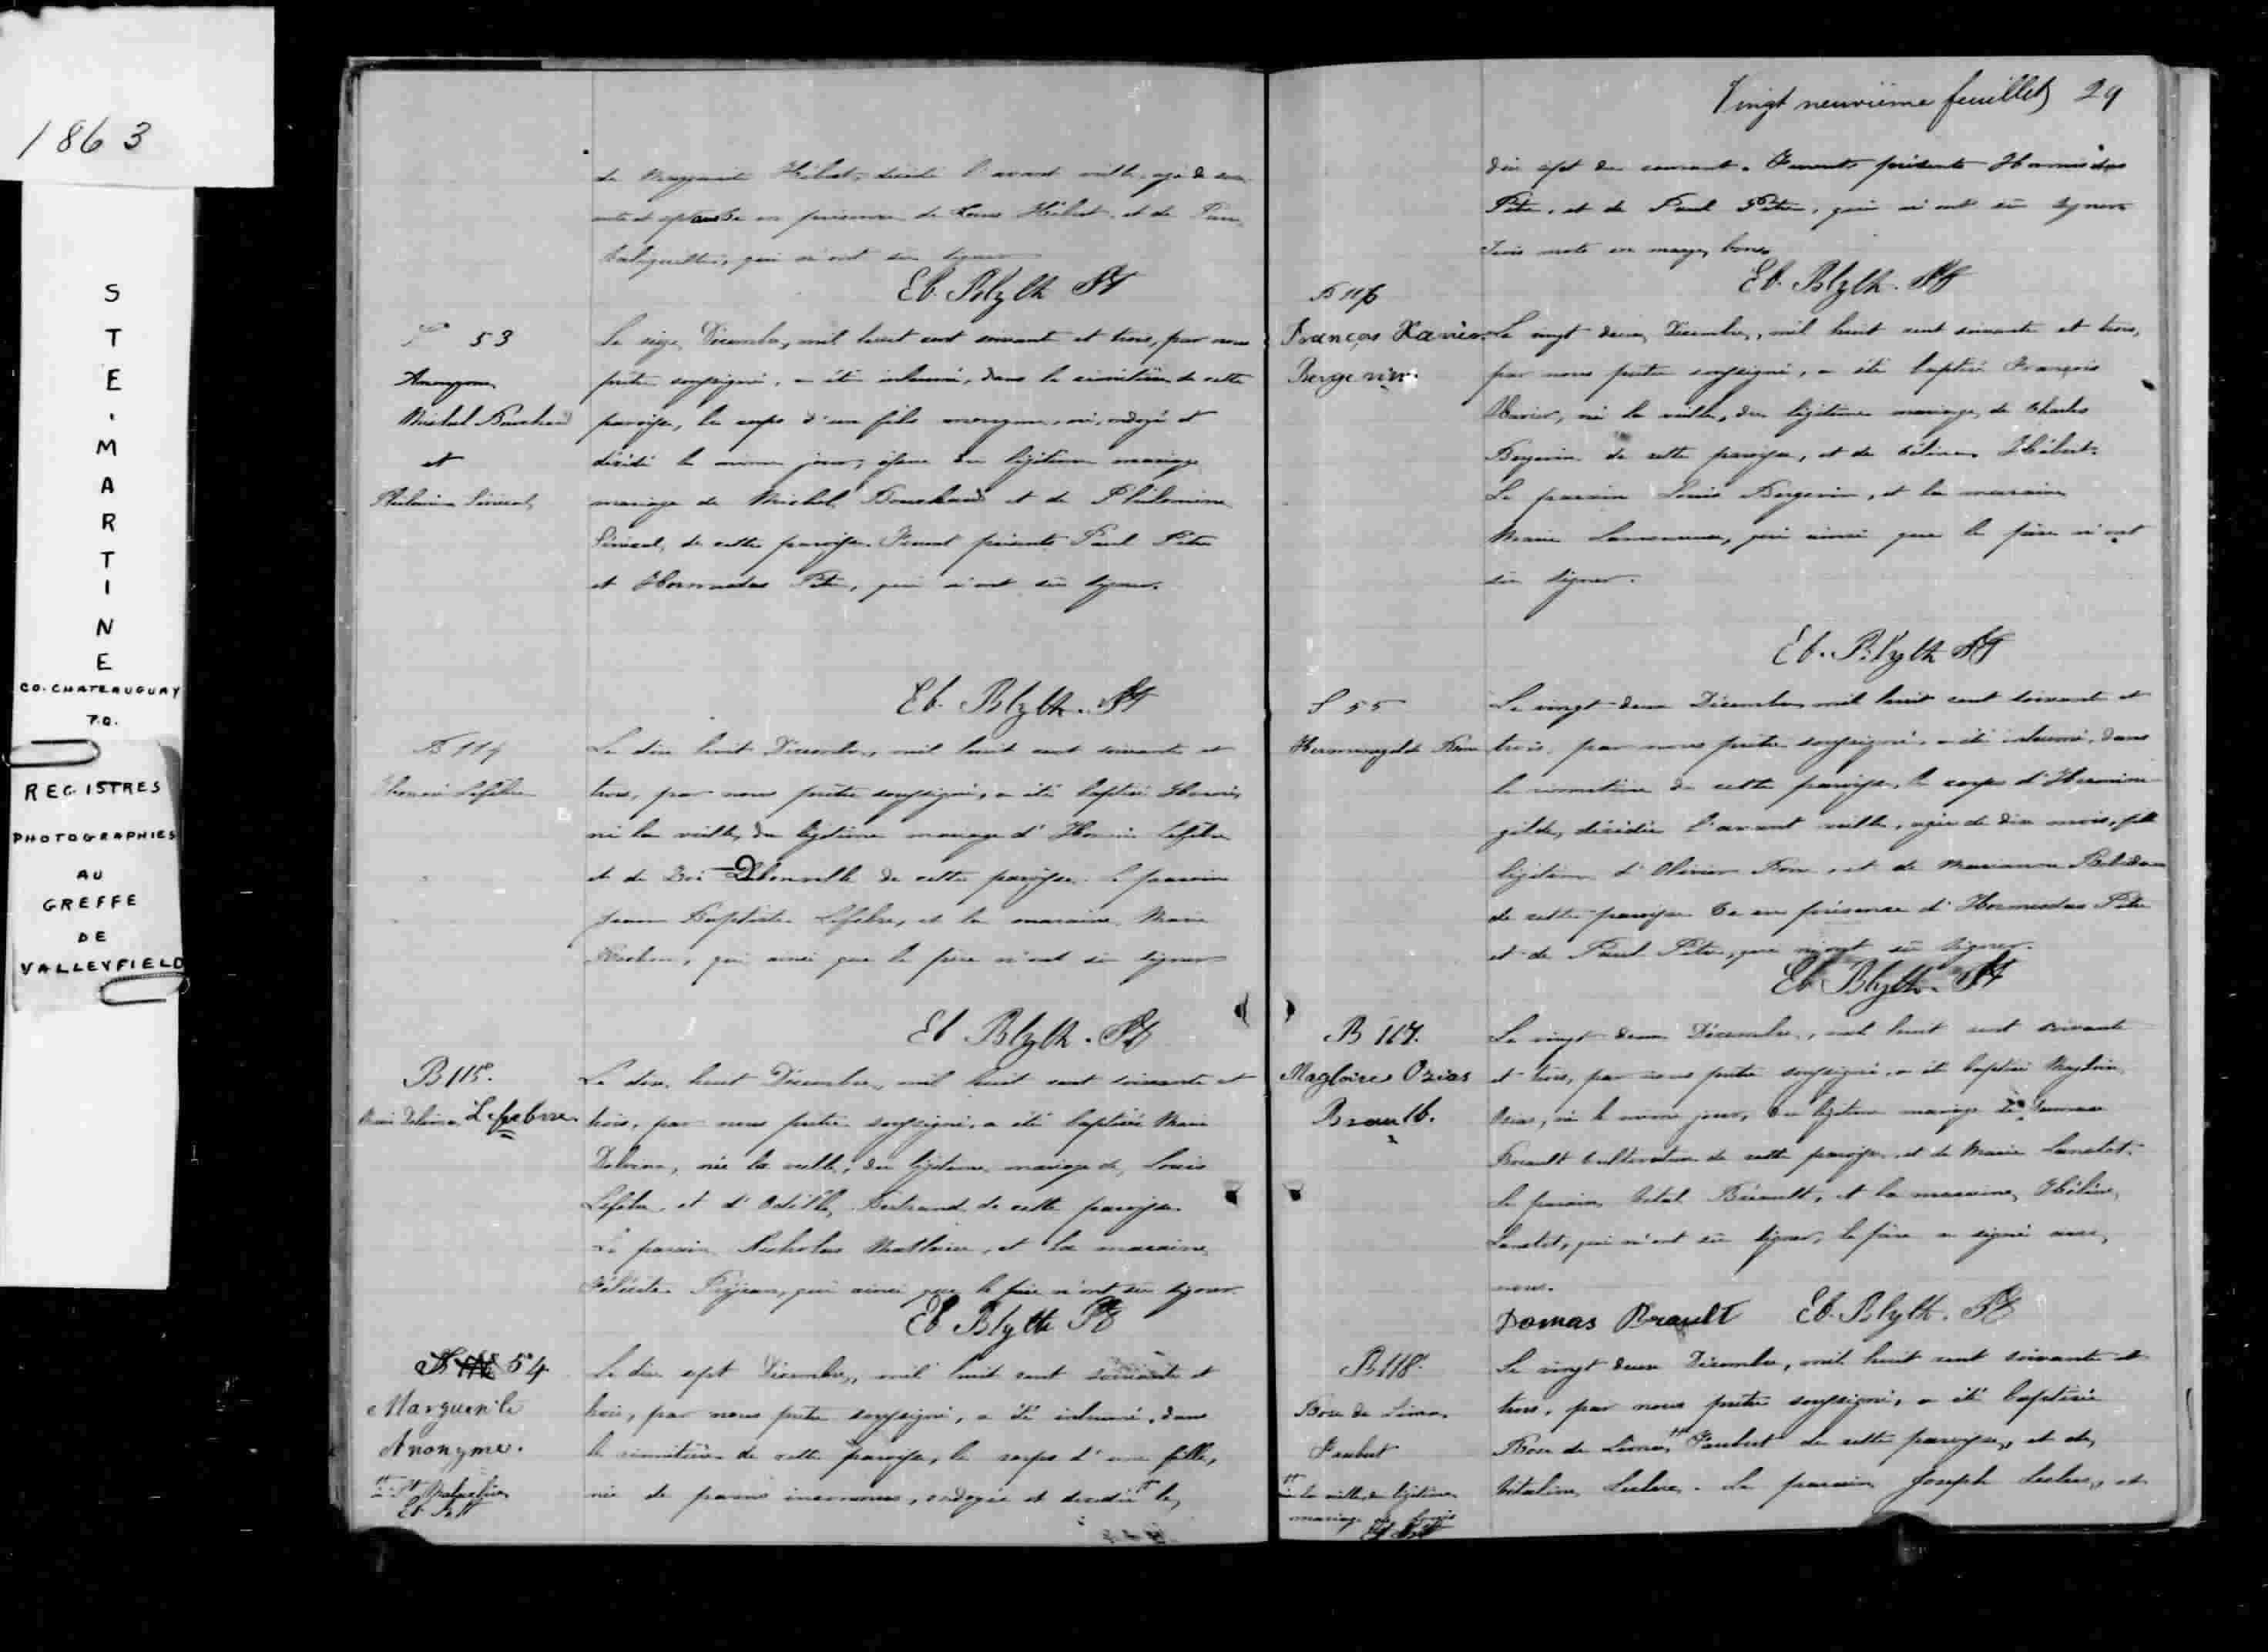 1863
STE. MARTINE
CO. CHATEAUGUAY
P.Q.
REGISTRES
PHOTOGRAPHIES
AU
GREFFE
DE
VALLEYFIELD
de Hébert, décédé l'avant veille, agé de
en présence de Louis Hébert et de
qui n'ont sû signer
Eb. Blyth Ptr
S 53
Anonyme
Michel Bouchard
et
Philomène Sénécal
Le seize Décembre, mil huit cent soixante et trois, par nous
prêtre soussigné, a été inhumé, dans le cimetière de cette
paroisse, le corps d'un fils anonyme, né, ondoyé et
décédé le même jour, du légitime mariage
mariage de Michel Bouchard et de Philomène
Sénécal, de cette paroisse. Furent présents Paul Pitre
et Hormisdas Pitre, qui n'ont sû signer.
Eb. Blyth. Ptr
B 114
Honoré Lefebre
Le dix huit Décembre, mil huit cent soixante et
trois, par nous prêtre soussigné, a été baptisé Honoré,
né la veille, du légitime mariage d'Honoré Lefebre
et de Zoé de cette paroisse. Le parrain
Jean Baptiste Lefebre, et la maraine Marie
qui ainsi que le père n'ont sû signer
Eb Blyth. Ptr
B 115.
Marie Delvina Lefebvre
Le dix huit Décembre, mil huit cent soixante et
trois, par nous prêtre soussigné, a été baptisée Marie
Delvina, née la veille, du légitime mariage de Louis
Lefebre et d'Odille Bertrand de cette paroisse.
Le parrain Nicholas et la maraine
qui ainsi que le père n'ont sû signer
Eb Blyth Ptr
S 54
Marguerite
Anonyme.
Le dix sept Décembre, mil huit cent soixante et
trois, par nous prêtre soussigné, a été inhumé, dans
le cimetière de cette paroisse, le corps d'une fille,
née de parens inconnus, ondoyée et décédée le
Vingt neuvième feuillet 29
dix sept du courant. Furent présents Hormisdas
Pitre, et de Paul Pitre, qui n'ont sû signer
Trois mots en marge bons
Eb. Blyth. Ptr
B 116
François Xavier
Bergevin
Le vingt deux Décembre, mil huit cent soixante et trois,
par nous prêtre soussigné, a été baptisé François
Xavier, né la veille, du légitime mariage de Charles
Bergevin de cette paroisse, et de Hébert.
Le parrain Louis Bergevin, et la maraine
Marie qui ainsi que le père n'ont
sû signer.
Eb. Blyth Ptr
S 55
Hermengilde
Le vingt deux Décembre mil huit cent soixante et
trois, par nous prêtre soussigné, a été inhumé, dans
le cimetière de cette paroisse, le corps d'Hermine
gilde, décédée l'avant veille, agée de dix mois, fille
légitime d'Olivier et de Marianne
de cette paroisse en présence d'Hormisdas Pitre
et de Paul Pitre, qui n'ont sû signer.
Eb Blyth. Ptr
B 117.
Magloire Ozias
Brault.
Le vingt deux Décembre, mil huit cent soixante
et trois, par nous prêtre soussigné, a été baptisé Magloire
Ozias, né le même jour, du légitime mariage de Damase
Breault Cultivateur de cette paroisse et de Marie Lanctot.
Le parrain Vital Breault, et la maraine Hélène
Lanctot, qui n'ont sû signer, le père a signé avec
nous.
Domas Brault Eb. Blyth. Ptr
B 118.
Rose de Lima
Faubert
née la veille, du légitime
mariage de Louis
Le vingt deux Décembre, mil huit cent soixante et
trois, par nous prêtre soussigné, a été baptisée
Rose de Lima Faubert de cette paroisse, et de
Vitaline Leclerc. Le parrain Joseph Leclerc, et